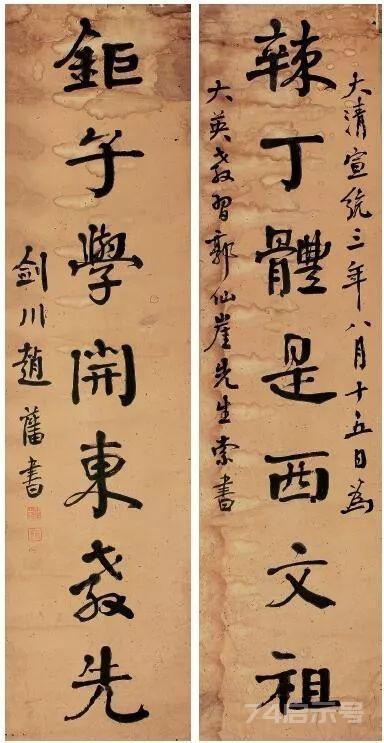 大清宣統三年八月十五日為
辣丁體是西文祖
大英教習郭仙崖先生索書
鉅子學開東教先
劍川趙藩書
74启示号